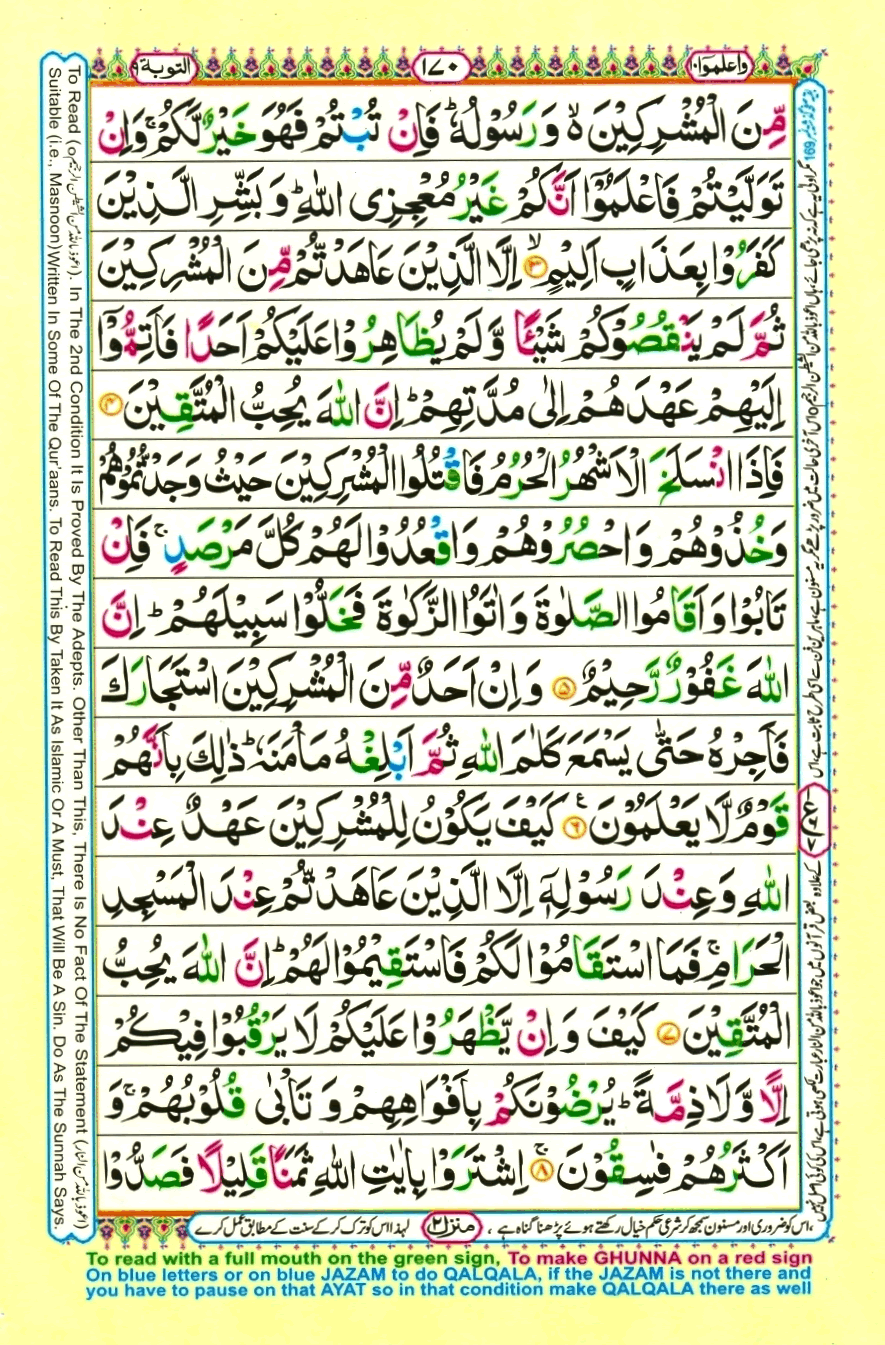 واعلموا۱۰
۱۷۰
التوبة ۹
مِّنَ الْمُشْرِكِيْنَ ۙ۬ وَرَسُوْلُهٗ ؕ فَاِنْ تُبْتُمْ فَهُوَ خَيْرٌ لَّكُمْ ۚ وَاِنْ
تَوَلَّيْتُمْ فَاعْلَمُوْۤا اَنَّكُمْ غَيْرُ مُعْجِزِى اللّٰهِ ؕ وَ بَشِّرِ الَّذِيْنَ
كَفَرُوْا بِعَذَابٍ اَلِيْمٍ ۙ﴿۳﴾ اِلَّا الَّذِيْنَ عَاهَدْتُّمْ مِّنَ الْمُشْرِكِيْنَ
ثُمَّ لَمْ يَنْقُصُوْكُمْ شَيْـًٔا وَّ لَمْ يُظَاهِرُوْا عَلَيْكُمْ اَحَدًا فَاَتِمُّوْۤا
اِلَيْهِمْ عَهْدَهُمْ اِلٰى مُدَّتِهِمْ ؕ اِنَّ اللّٰهَ يُحِبُّ الْمُتَّقِيْنَ ﴿۴﴾
فَاِذَا انْسَلَخَ الْاَشْهُرُ الْحُرُمُ فَاقْتُلُوا الْمُشْرِكِيْنَ حَيْثُ وَجَدْتُّمُوْهُمْ
وَخُذُوْهُمْ وَاحْصُرُوْهُمْ وَاقْعُدُوْا لَهُمْ كُلَّ مَرْصَدٍ ۚ فَاِنْ
تَابُوْا وَاَقَامُوا الصَّلٰوةَ وَاٰتَوُا الزَّكٰوةَ فَخَلُّوْا سَبِيْلَهُمْ ؕ اِنَّ
اللّٰهَ غَفُوْرٌ رَّحِيْمٌ ﴿۵﴾ وَ اِنْ اَحَدٌ مِّنَ الْمُشْرِكِيْنَ اسْتَجَارَكَ
فَاَجِرْهُ حَتّٰى يَسْمَعَ كَلٰمَ اللّٰهِ ثُمَّ اَبْلِغْهُ مَاْمَنَهٗ ؕ ذٰلِكَ بِاَنَّهُمْ
قَوْمٌ لَّا يَعْلَمُوْنَ ﴿۶﴾ كَيْفَ يَكُوْنُ لِلْمُشْرِكِيْنَ عَهْدٌ عِنْدَ
اللّٰهِ وَعِنْدَ رَسُوْلِهٖۤ اِلَّا الَّذِيْنَ عَاهَدْتُّمْ عِنْدَ الْمَسْجِدِ
الْحَرَامِ ۚ فَمَا اسْتَقَامُوْا لَكُمْ فَاسْتَقِيْمُوْا لَهُمْ ؕ اِنَّ اللّٰهَ يُحِبُّ
الْمُتَّقِيْنَ ﴿۷﴾ كَيْفَ وَ اِنْ يَّظْهَرُوْا عَلَيْكُمْ لَا يَرْقُبُوْا فِيْكُمْ
اِلًّا وَّ لَا ذِمَّةً ؕ يُرْضُوْنَكُمْ بِاَفْوَاهِهِمْ وَ تَاْبٰى قُلُوْبُهُمْ ۚ وَ
اَكْثَرُهُمْ فٰسِقُوْنَ ۚ﴿۸﴾ اِشْتَرَوْا بِاٰيٰتِ اللّٰهِ ثَمَنًا قَلِيْلًا فَصَدُّوْا
To Read (اعوذ بالله من الشیطن الرجیم). In The 2nd Condition It Is Proved By The Adepts. Other Than This, There Is No Fact Of The Statement (اعوذ بالله من النار)
Suitable (i.e., Masnoon)Written In Some Of The Qur'aans. To Read This By Taken It As Islamic Or A Must, That Will Be A Sin. Do As The Sunnah Says.
،اس کو ضروری اور مسنون سمجھ کر شرعی حکم خیال رکھتے ہوئے پڑھنا گناہ ہے ، منزل۲ لہٰذا اس کو ترک کر کے سنت کے مطابق عمل کرے
To read with a full mouth on the green sign, To make GHUNNA on a red sign
On blue letters or on blue JAZAM to do QALQALA, if the JAZAM is not there and
you have to pause on that AYAT so in that condition make QALQALA there as well